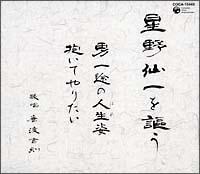 COCA-15469
星野仙一を謳う
男一途の人生姿
抱いてやりたい
歌唱